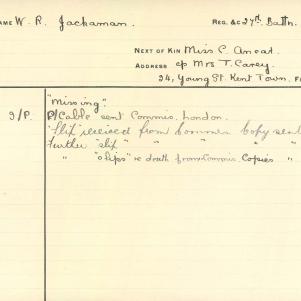 AME W. R. Jackaman. REG. &c 27th Battn.
NEXT OF KIN Miss C. Aneat
ADDRESS c/o Mrs T. Carey.
24, Young St. Kent Town,
"Missing".
9/P. P/Cable sent Commis. London.
"Slip" received from Commis. Copy sent
Further "slip" " " " "
" "slips" re death from Commis. Copies "